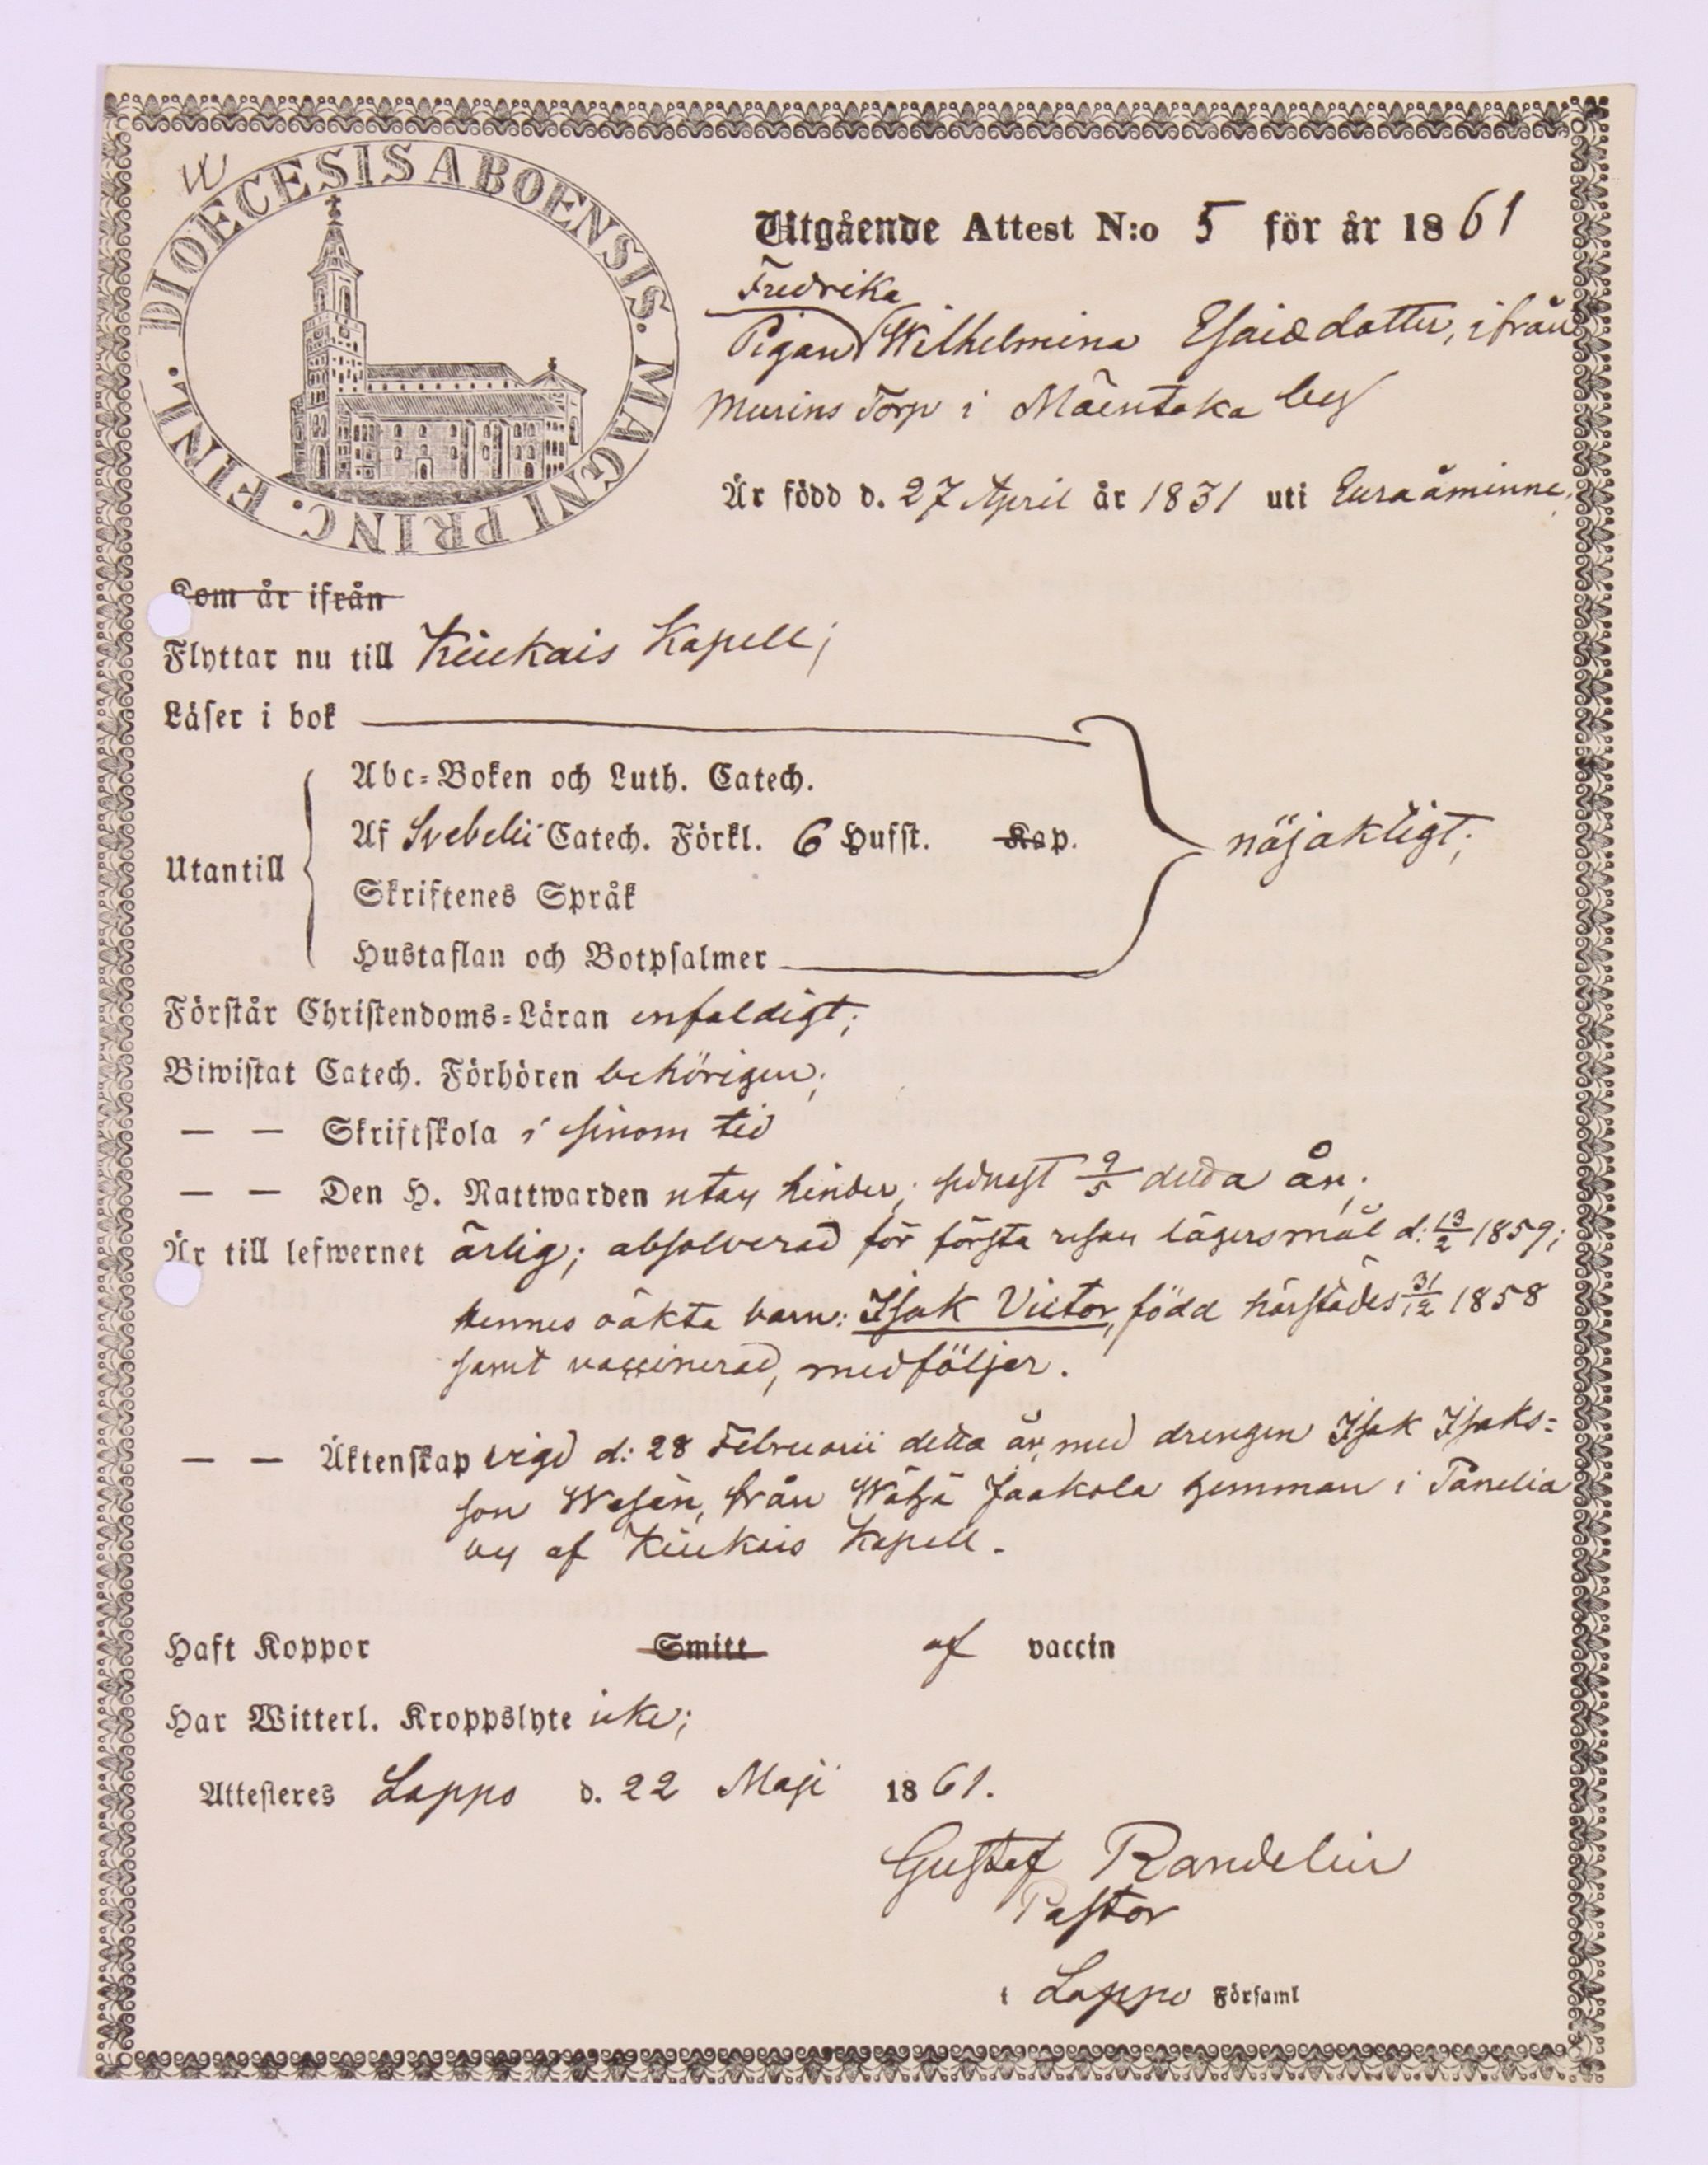 DIOECESIS ABOENSIS. MAGNI PRINC. FINL.
Utgående Attest N:o 5 för år 1861
Fredrika
Pigan Wilhelmina Esaiædotter, ifrån
Murins Torp i Mäentaka by
Är född d. 27 April år 1831 uti Euraåminne,
Kom år ifrån
Flyttar nu till Kiukais Kapell;
Läser i bok
Utantill
Abc-Boken och Luth. Catech.
Af Svebelii Catech. Förkl. 6 Hufst. Kap.
Skriftenes Språk
Hustaflan och Botpsalmer
nöjaktigt;
Förstår Christendoms-Läran enfaldigt;
Biwistat Catech. Förhören behörigen;
— — Skriftskola i sinom tid
— — Den H. Nattwarden utan hinder; sednast 9/5 detta år;
Är till lefwernet ärlig; absolverad för första resan lägersmål d: 13/2 1859;
hennes oäkta barn: Isak Victor, född härstädes 31/12 1858
samt vaccinerad, medföljer.
— — Äktenskap vigd d: 28 Februarii detta år, med drengen Isak Isaks-
son Wesén, från Wähä Jaakola hemman i Panelia
by af Kiukais Kapell.
Haft Koppor Smitt af vaccin
Har Witterl. Kroppslyte icke;
Attesteres Lappo d. 22 Maji 1861.
Gustaf Randelin
Pastor
i Lappo Församl